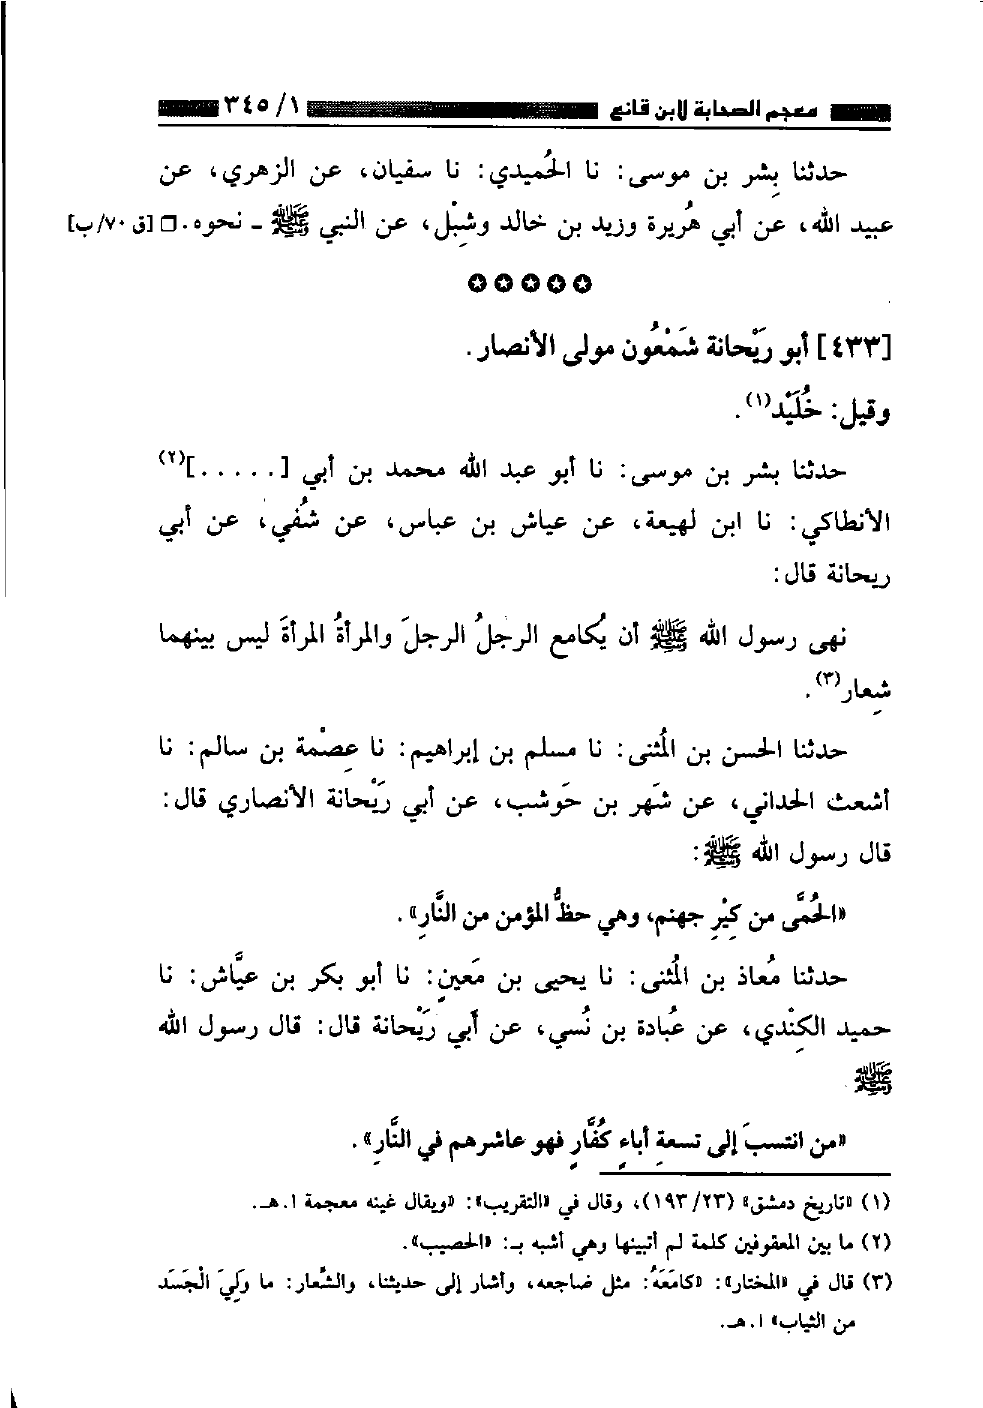 معجم الصحابة لابن قانع ٣٤٥/١
حدثنا بِشر بن موسى: نا الحُميدي: نا سفيان، عن الزهري، عن
عبيد الله، عن أبي هُريرة وزيد بن خالد وشِبْل، عن النبي ﷺ ـ نحوه. □ [ق ٧٠/ب]
✪✪✪✪✪
[٤٣٣] أبو رَيْحانة شَمْعُون مولى الأنصار.
وقيل: خُلَيْد(١).
حدثنا بشر بن موسى: نا أبو عبد الله محمد بن أبي [.....](٢)
الأنطاكي: نا ابن لهيعة، عن عياش بن عباس، عن شُفي، عن أبي
ريحانة قال:
نهى رسول الله ﷺ أن يُكامع الرجلُ الرجلَ والمرأةُ المرأةَ ليس بينهما
شِعار(٣).
حدثنا الحسن بن المُثنى: نا مسلم بن إبراهيم: نا عِصْمة بن سالم: نا
أشعث الحداني، عن شَهر بن حَوشب، عن أبي رَيْحانة الأنصاري قال:
قال رسول الله ﷺ:
«الحُمَّى من كِيْرِ جهنم، وهي حظُّ المؤمن من النَّارِ».
حدثنا مُعاذ بن المُثنى: نا يحيى بن مَعينٍ: نا أبو بكر بن عيَّاش: نا
حميد الكِنْدي، عن عُبادة بن نُسي، عن أَبي رَيْحانة قال: قال رسول الله
ﷺ
«من انتسبَ إلى تسعةِ أباءٍ كُفَّارٍ فهو عاشرهم في النَّارِ».
(١) «تاريخ دمشق» (١٩٣/٢٣)، وقال في «التقريب»: «ويقال غينه معجمة ا.هـ.
(٢) ما بين المعقوفين كلمة لم أتبينها وهي أشبه بـ: «الحصيب».
(٣) قال في «المختار»: «كامَعَهُ: مثل ضاجعه، وأشار إلى حديثنا، والشِّعار: ما وَلِيَ الْجَسَد
من الثياب» ا.هـ.